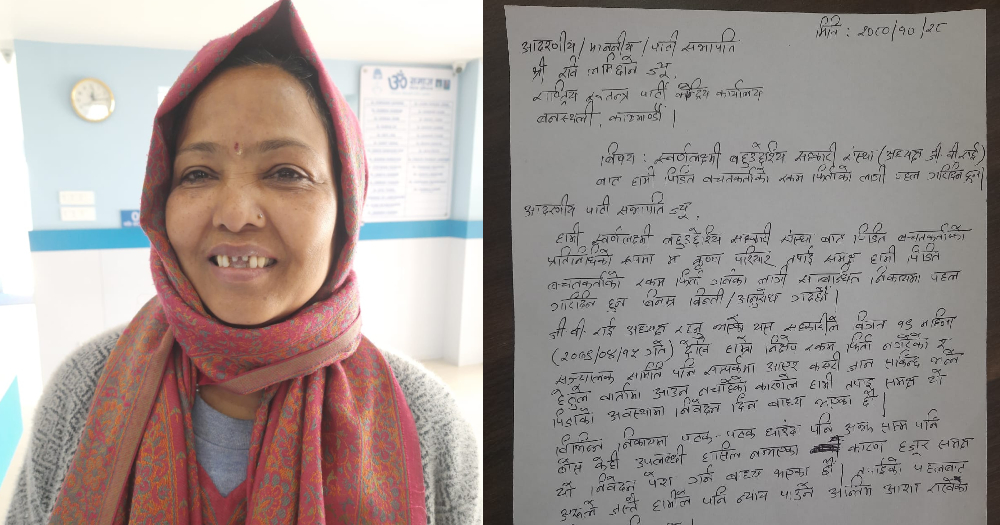 ॐ समाज
मिति : २०८०/१०/२८
आदरणीय / माननीय / पार्टी सभापति
श्री रवि लामिछाने ज्यू,
राष्ट्रिय स्वतन्त्र पार्टी केन्द्रिय कार्यालय
बनस्थली, काठमाण्डौ ।
विषय : स्वर्णलक्ष्मी बहुउद्देश्यिय सहकारी संस्था (अध्यक्ष जी.बी.राई)
बाट हामी पिडित बचतकर्ताको रकम फिर्ताको लागी पहल गरिदिन हुन।
आदरणीय पार्टी सभापति ज्यू,
हामी स्वर्णलक्ष्मी बहुउद्देश्यिय सहकारी संस्था बाट पिडित बचतकर्ताको
प्रतिनिधिको रुपमा म कृष्णा परियार तपाई समक्ष हामी पिडित
बचतकर्ताको रकम फिर्ता गर्नको लागी सम्बन्धित निकायमा पहल
गरिदिन हुन विनम्र विन्ती / अनुरोध गर्दछौ ।
जी.बी. राई अध्यक्ष रहनु भएको यस सहकारीले विगत १९ महिना
(२०७९/०४/१५ गते) देखि हाम्रो निक्षेप रकम फिर्ता नगरेको र
सञ्चालक समिति पनि सम्पर्कमा आएर कसरी जान सकिन्छ भन्ने
हेतुले वार्तामा आउन नचाहेको कारणले हामी तपाई समक्ष यो
पिडाको अवस्थामा निवेदन दिन बाध्य भएका छौ ।
विभिन्न निकायमा पटक-पटक धाउँदा पनि अहिले सम्म पनि
ठोस केही उपलब्धी हासिल नभएका कारण हजुर समक्ष
यो निवेदन पेश गर्न बाध्य भएका छौ । पहलबाट
अरुले जस्तै हामीले पनि न्याय पाउने अन्तिम आशा राखेका